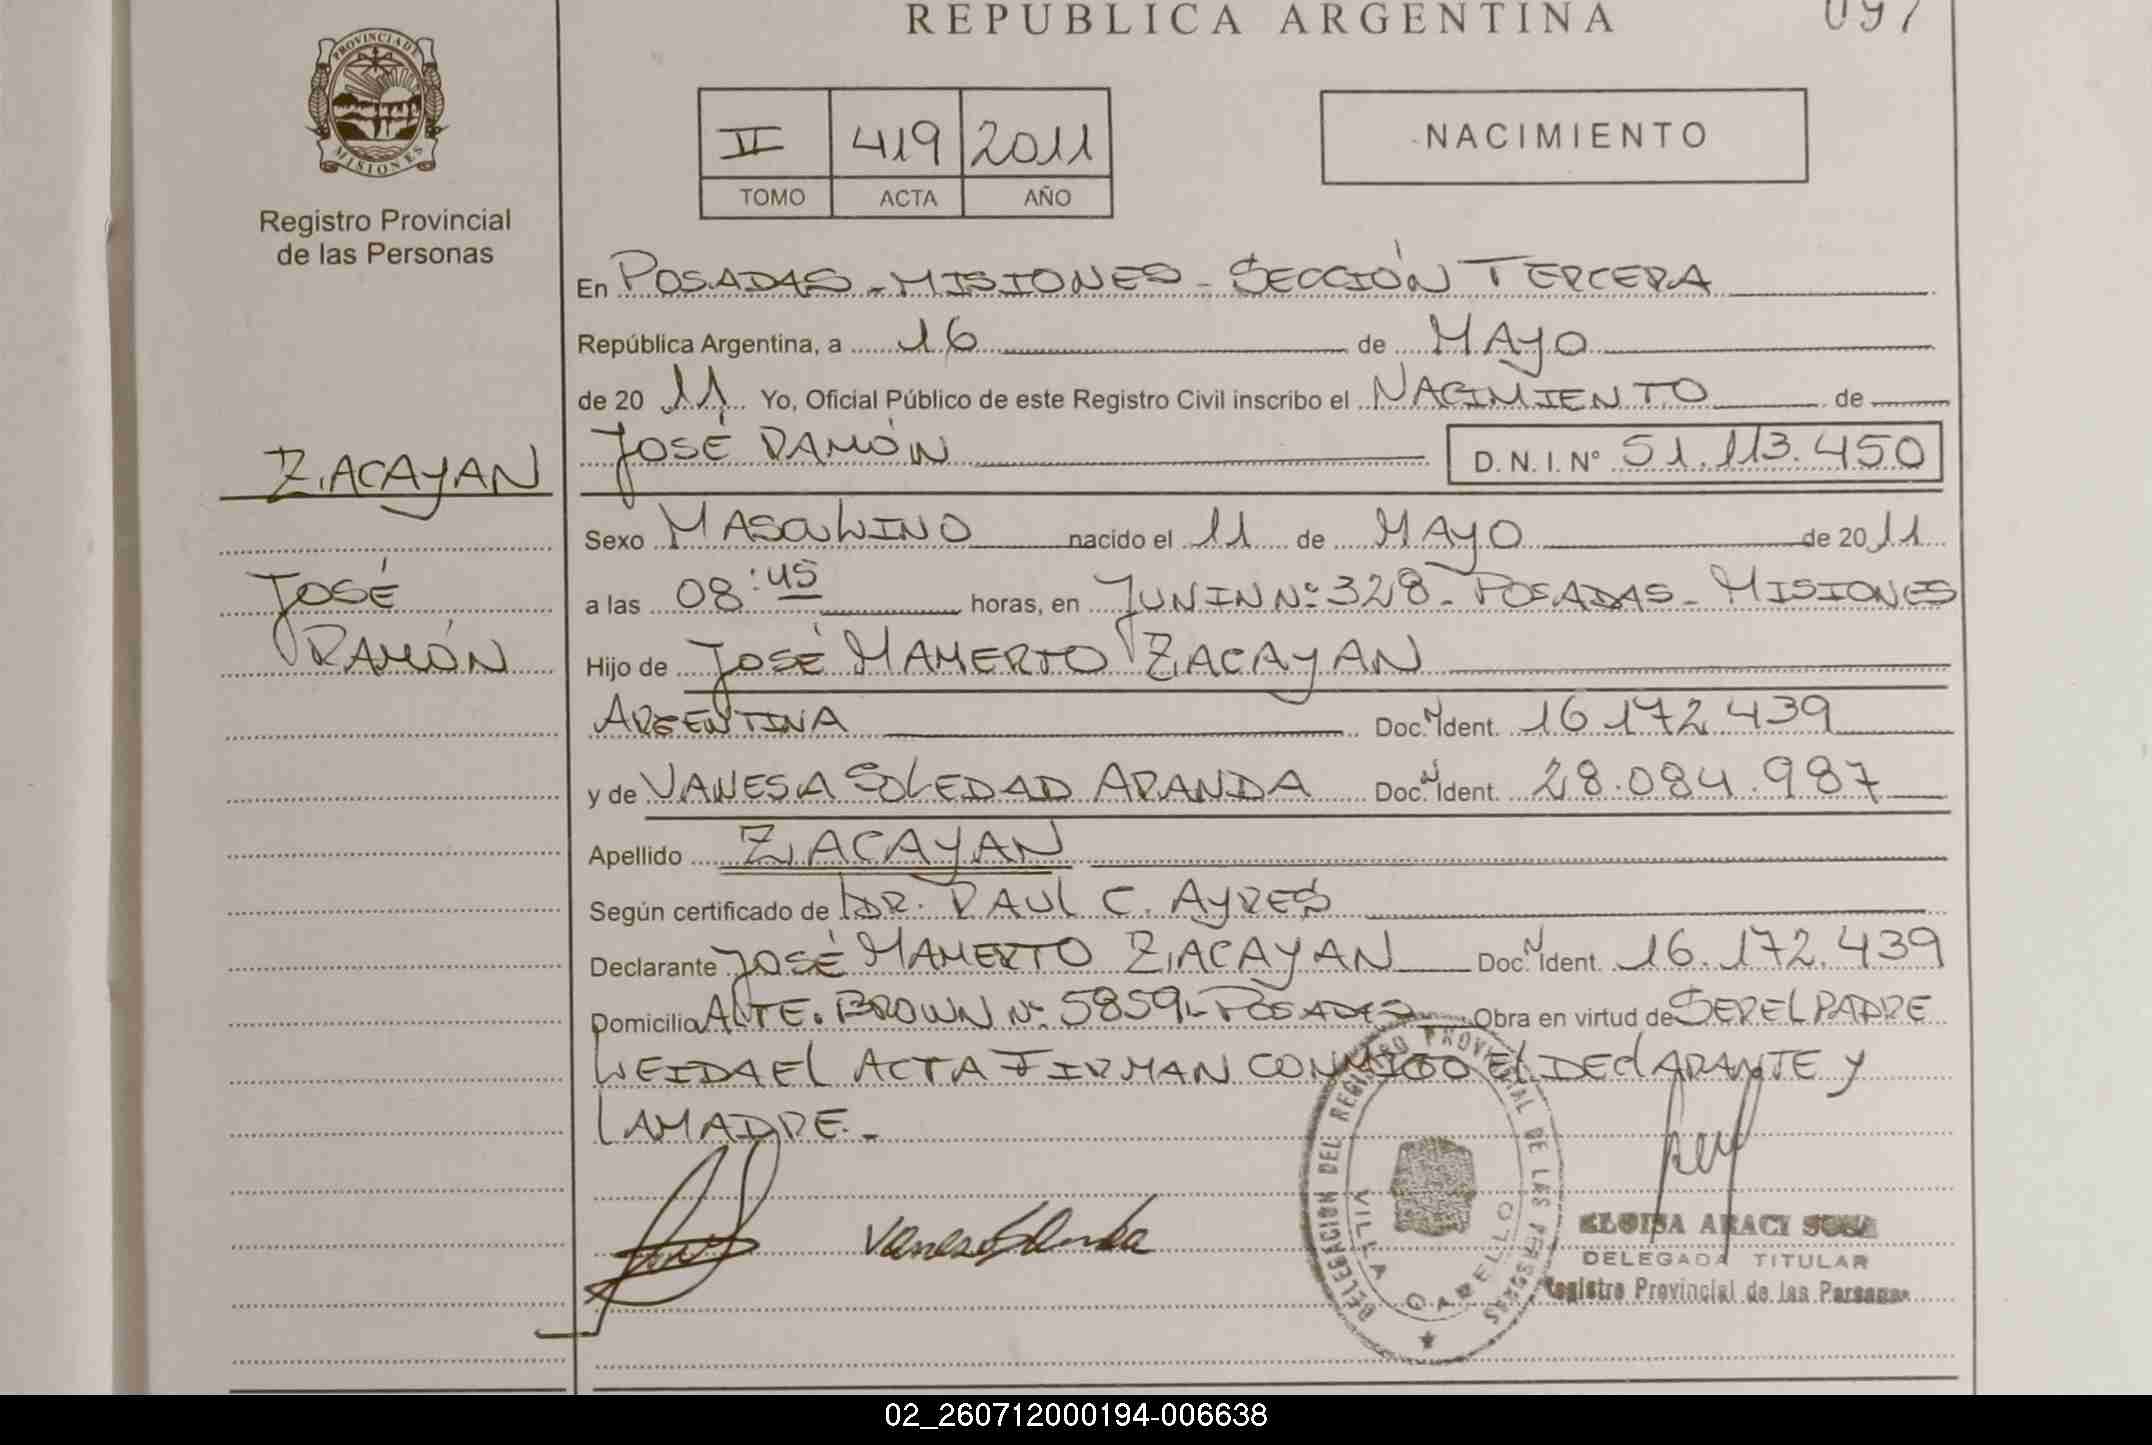 REPUBLICA ARGENTINA
097
PROVINCIA DE MISIONES
Registro Provincial
de las Personas
II 419 2011
TOMO ACTA AÑO
NACIMIENTO
En POSADAS - MISIONES - SECCIÓN TERCERA
República Argentina, a 16 de MAYO
de 20 11 Yo, Oficial Público de este Registro Civil inscribo el NACIMIENTO de
JOSÉ RAMÓN D.N.I. N° 51.113.450
ZACAYAN
JOSÉ
RAMÓN
Sexo MASCULINO nacido el 11 de MAYO de 20 11
a las 08:45 horas, en JUNIN Nº 328 - POSADAS - MISIONES
Hijo de JOSÉ MAMERTO ZACAYAN
ARGENTINA Doc. N Ident. 16.172.439
y de VANESA SOLEDAD ARANDA Doc. N Ident. 28.084.987
Apellido ZACAYAN
Según certificado de DR. RAUL C. AYRES
Declarante JOSÉ MAMERTO ZACAYAN Doc. N Ident. 16.172.439
Domicilio ALTE. BROWN Nº 5859 - POSADAS Obra en virtud de SER EL PADRE
LEIDA EL ACTA FIRMAN CONMIGO EL DECLARANTE Y
LA MADRE.-
DELEGACION DEL REGISTRO PROVINCIAL DE LAS PERSONAS
VILLA CABELLO
ELOISA ARACI SOSA
DELEGADA TITULAR
Registro Provincial de las Personas
02_260712000194-006638